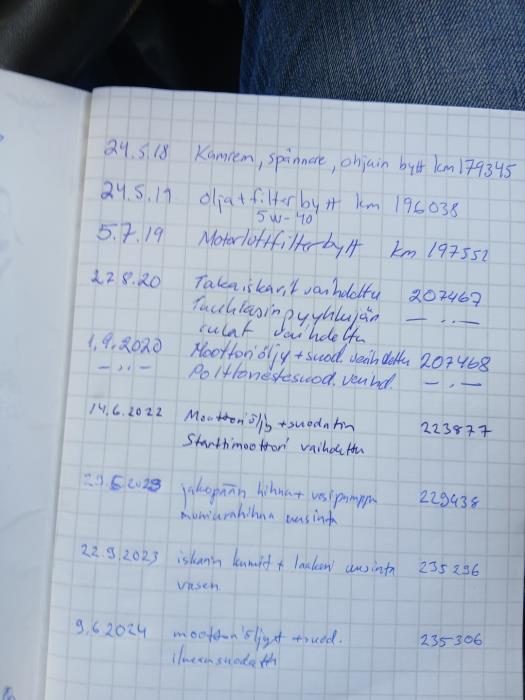 24.5.18 Kamrem, spännare, ohjain bytt km 179345
24.5.19 olja + filter bytt km 196038
5W-40
5.7.19 Motorluftfilter bytt km 197552
27.8.20 Takaiskarit vaihdettu 207467
Tuulilasinpyyhkijän — .. —
sulat vaihdettu
1.9.2020 Moottoriöljy + suod. vaihdettu 207468
— .. — Polttonestesuod. vaihd. — . —
14.6.2022 Moottoriöljy + suodatin 223877
Starttimoottori vaihdettu
29.5.2023 jakopään hihna + vesipumppu 229438
uusinta
22.9.2023 iskarin kumit + laakeri uusinta 235296
vasen
9.6.2024 moottoriöljyt + suod. 235306
ilmansuodatt